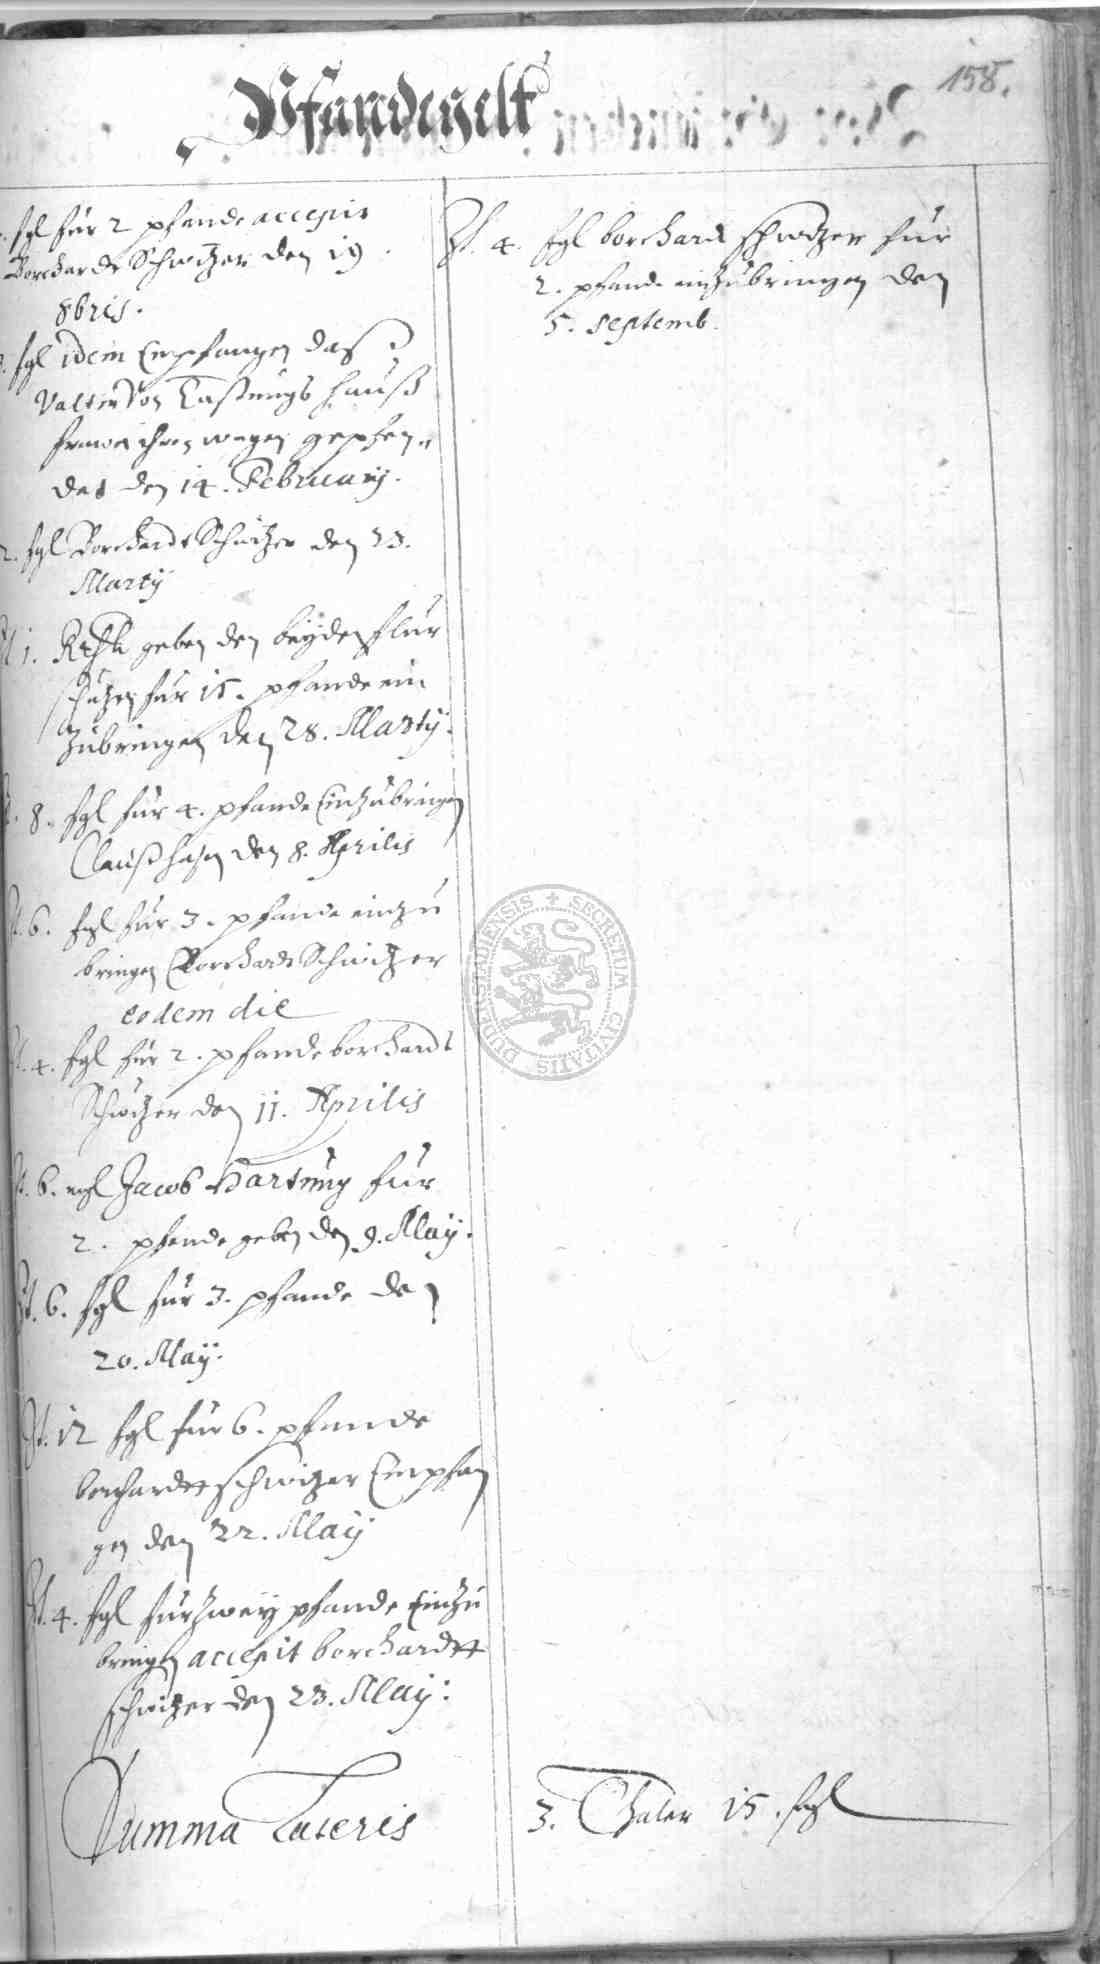 158.
Pfandegelt
fgl für 2 pfande accepit
Borchardt Schwitzer den 19
8bris.
fgl idem Empfangen das
Valtin Von Taßungs hauß
frawen ihren wagen gepfen„
det den 14. February.
2. fgl Borchardt Schwitzer den 23.
Marty
1. Rthlr geben den beyden flur
schutzen für 15. pfande ein
Zubringen den 28. Marty.
8. fgl für 4. pfande Einzubringen
Clauß den 8. Aprilis
6. fgl für 3. pfande einzu
bringen Borchardt Schwitzer
eodem die
4. fgl für 2. pfande borchardt
Schwitzer den 11. Aprilis
6. mgl Jacob Hartung für
2. pfande geben den 9. May.
6. fgl für 3. pfande den
20. May.
It. 12 fgl für 6. pfande
borchardtt schwitzer Empfan
gen den 22. May
It. 4. fgl für zwey pfande Einzu
bringen accepit borchardtt
schwitzer den 23. May.
Summa Lateris
It. 4. fgl borchard schwitzer für
2. pfande einzubringen den
5. septemb.
3. Thaler 15. fgl
DUDERSTADIENSIS + SECRETUM CIVITATIS